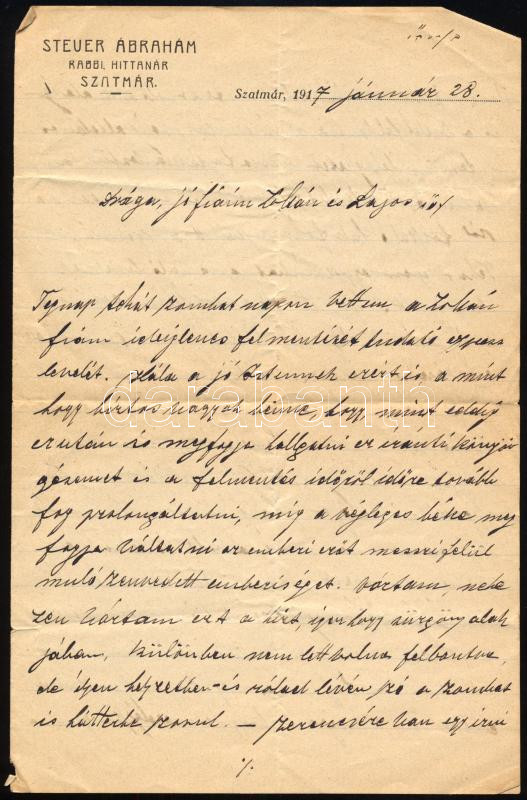 STEUER ÁBRAHÁM
RABBI, HITTANÁR
SZATMÁR.
Szatmár, 1917 január 28.
Drága, jó fiaim Zoltán és Lajos
Tegnap tehát szombat napon vettem a Zoltán
fiam ideiglenes felmentését tudató express
levelét. Hála a jó Istennek ezért is, a mint
hogy biztos vagyok benne, hogy mint eddig
ezután is meg fogja hallgatni ez iránti könyör
gésemet és a felmentés időről időre tovább
fog prolongáltatni, míg a végleges béke meg
fogja váltani az emberi erőt messze felül
muló szenvedett emberiséget. Vártam, nehe
zen vártam ezt a hírt, igaz hogy sürgöny alak
jában, különben nem lett volna felbontva,
de ilyen helyzetben és rólad lévén szó a szombat
is háttérbe szorul. — szerencsére van egy
./.
darabanth